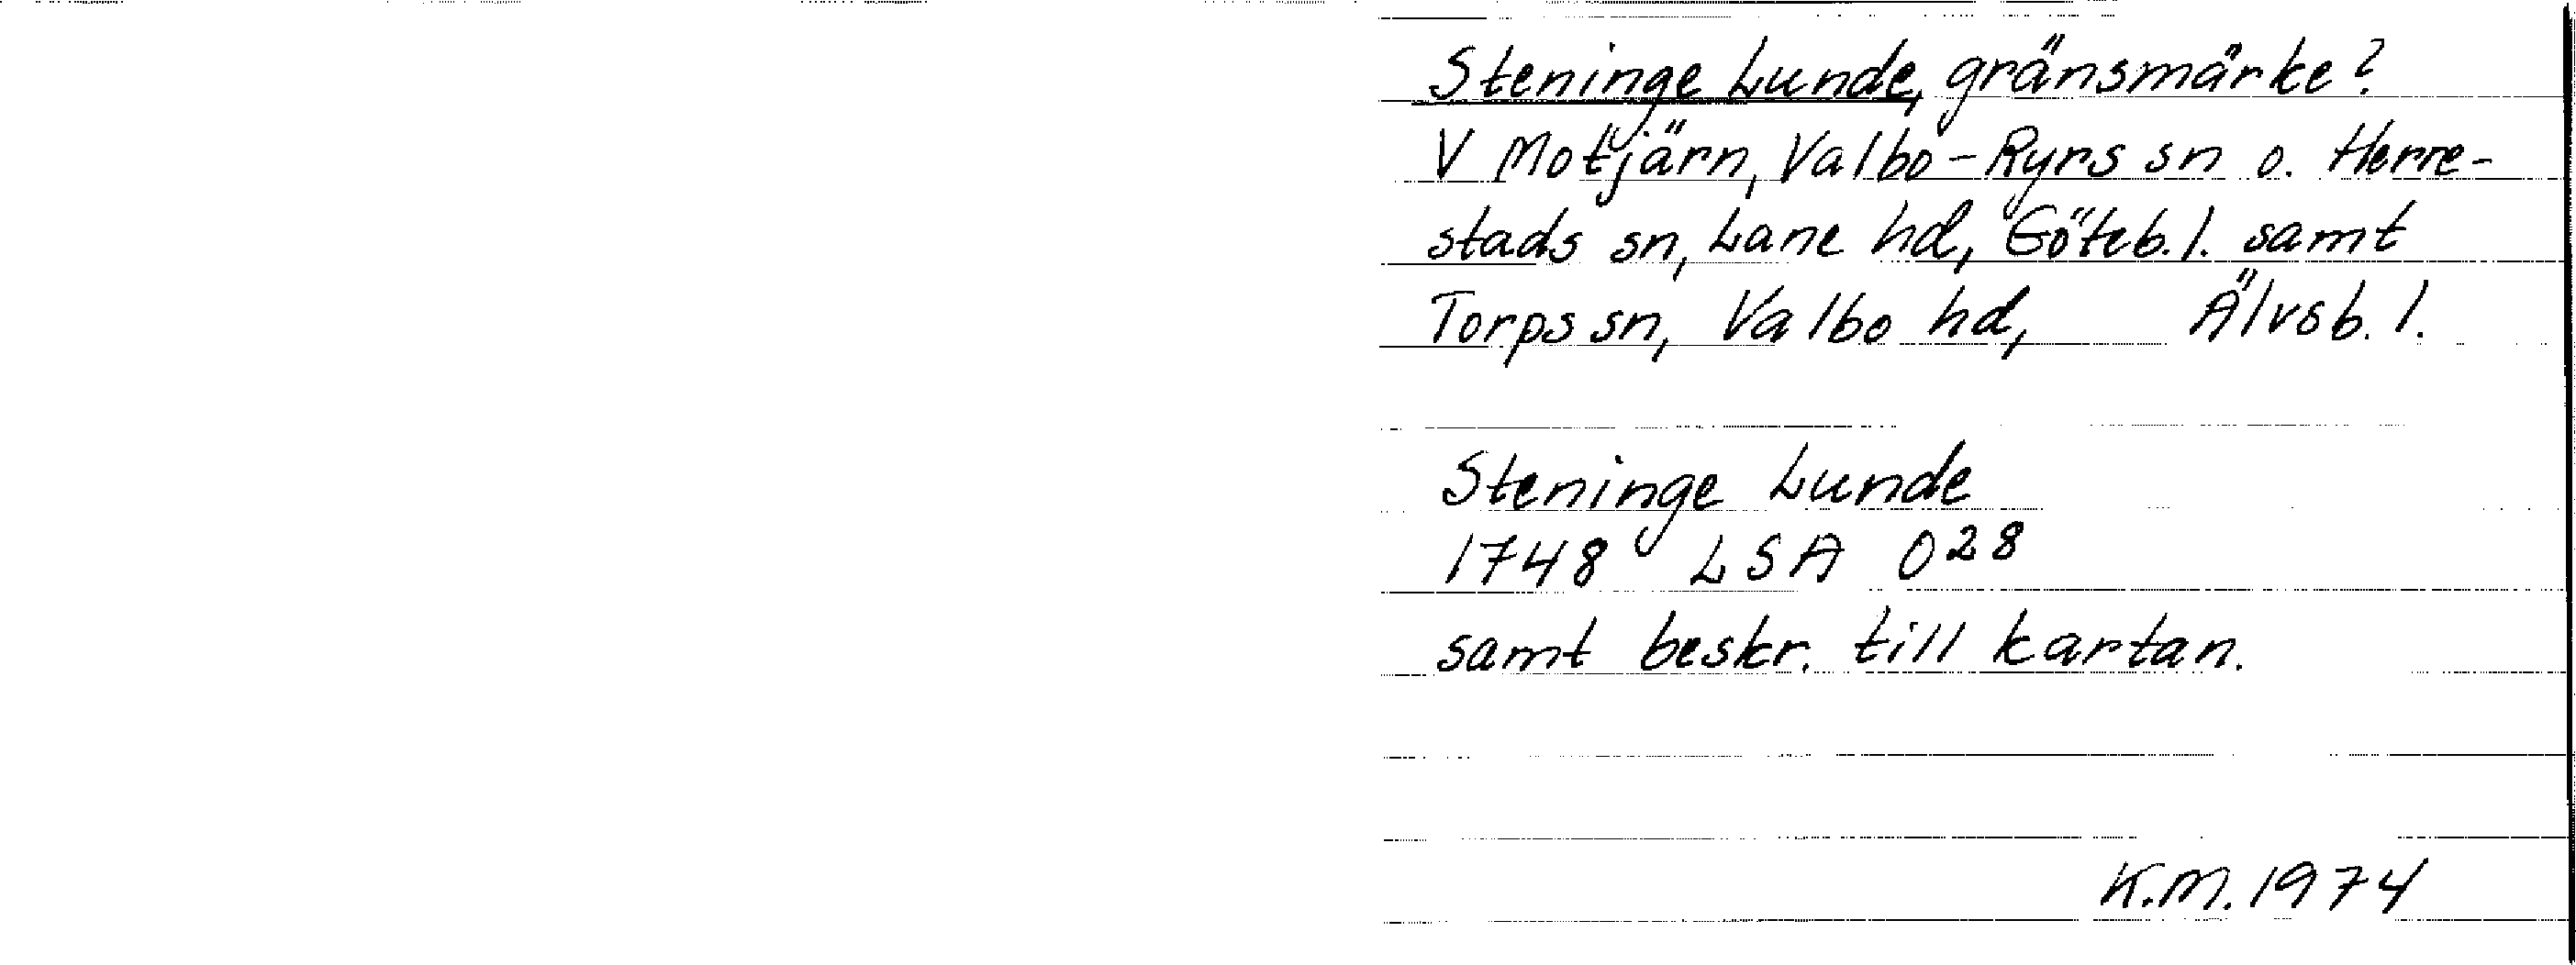 Steninge Lunde, gränsmärke?
V Motjärn, Valbo-Ryrs sn o. Herre-
stads sn, Lane hd, Göteb. l. samt
Torps sn, Valbo hd, Älvsb. l.
Steninge Lunde
1748 LSA O²⁸
samt beskr. till kartan.
K.M. 1974